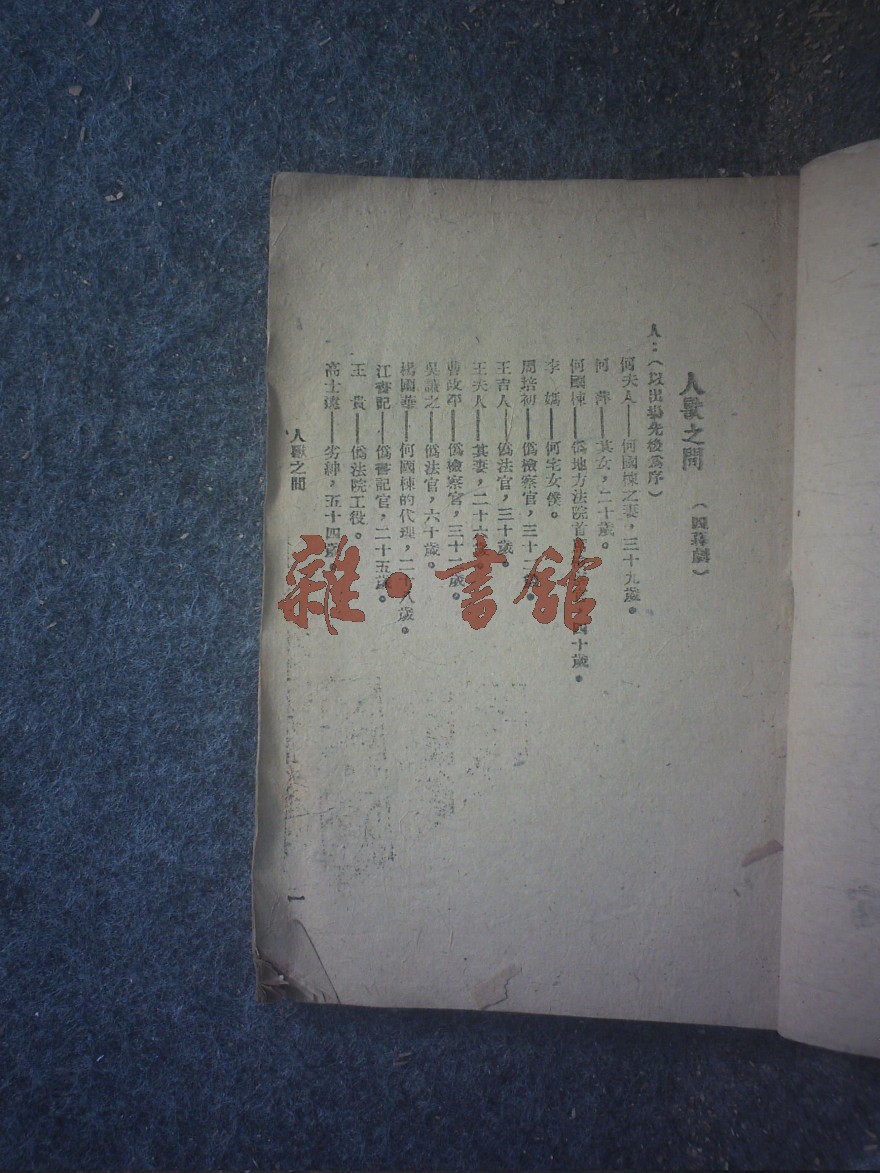 人獸之間
（四幕劇）
人：（以出場先後為序）
何夫人——何國棟之妻，三十九歲。
何　萍——其女，二十歲。
何國棟——僞地方法院首 四十歲。
李　媽——何宅女僕。
周培初——僞檢察官，三十二歲。
王吉人——僞法官，三十歲。
王夫人——其妻，二十六
曹政平——僞檢察官，三十二歲。
吳謙之——僞法官，六十歲。
楊國華——何國棟的代理，二十八歲。
江書記——僞書記官，二十五歲。
王　貴——僞法院工役。
高士遠——劣紳，五十四歲
人獸之間
一
雜·書館